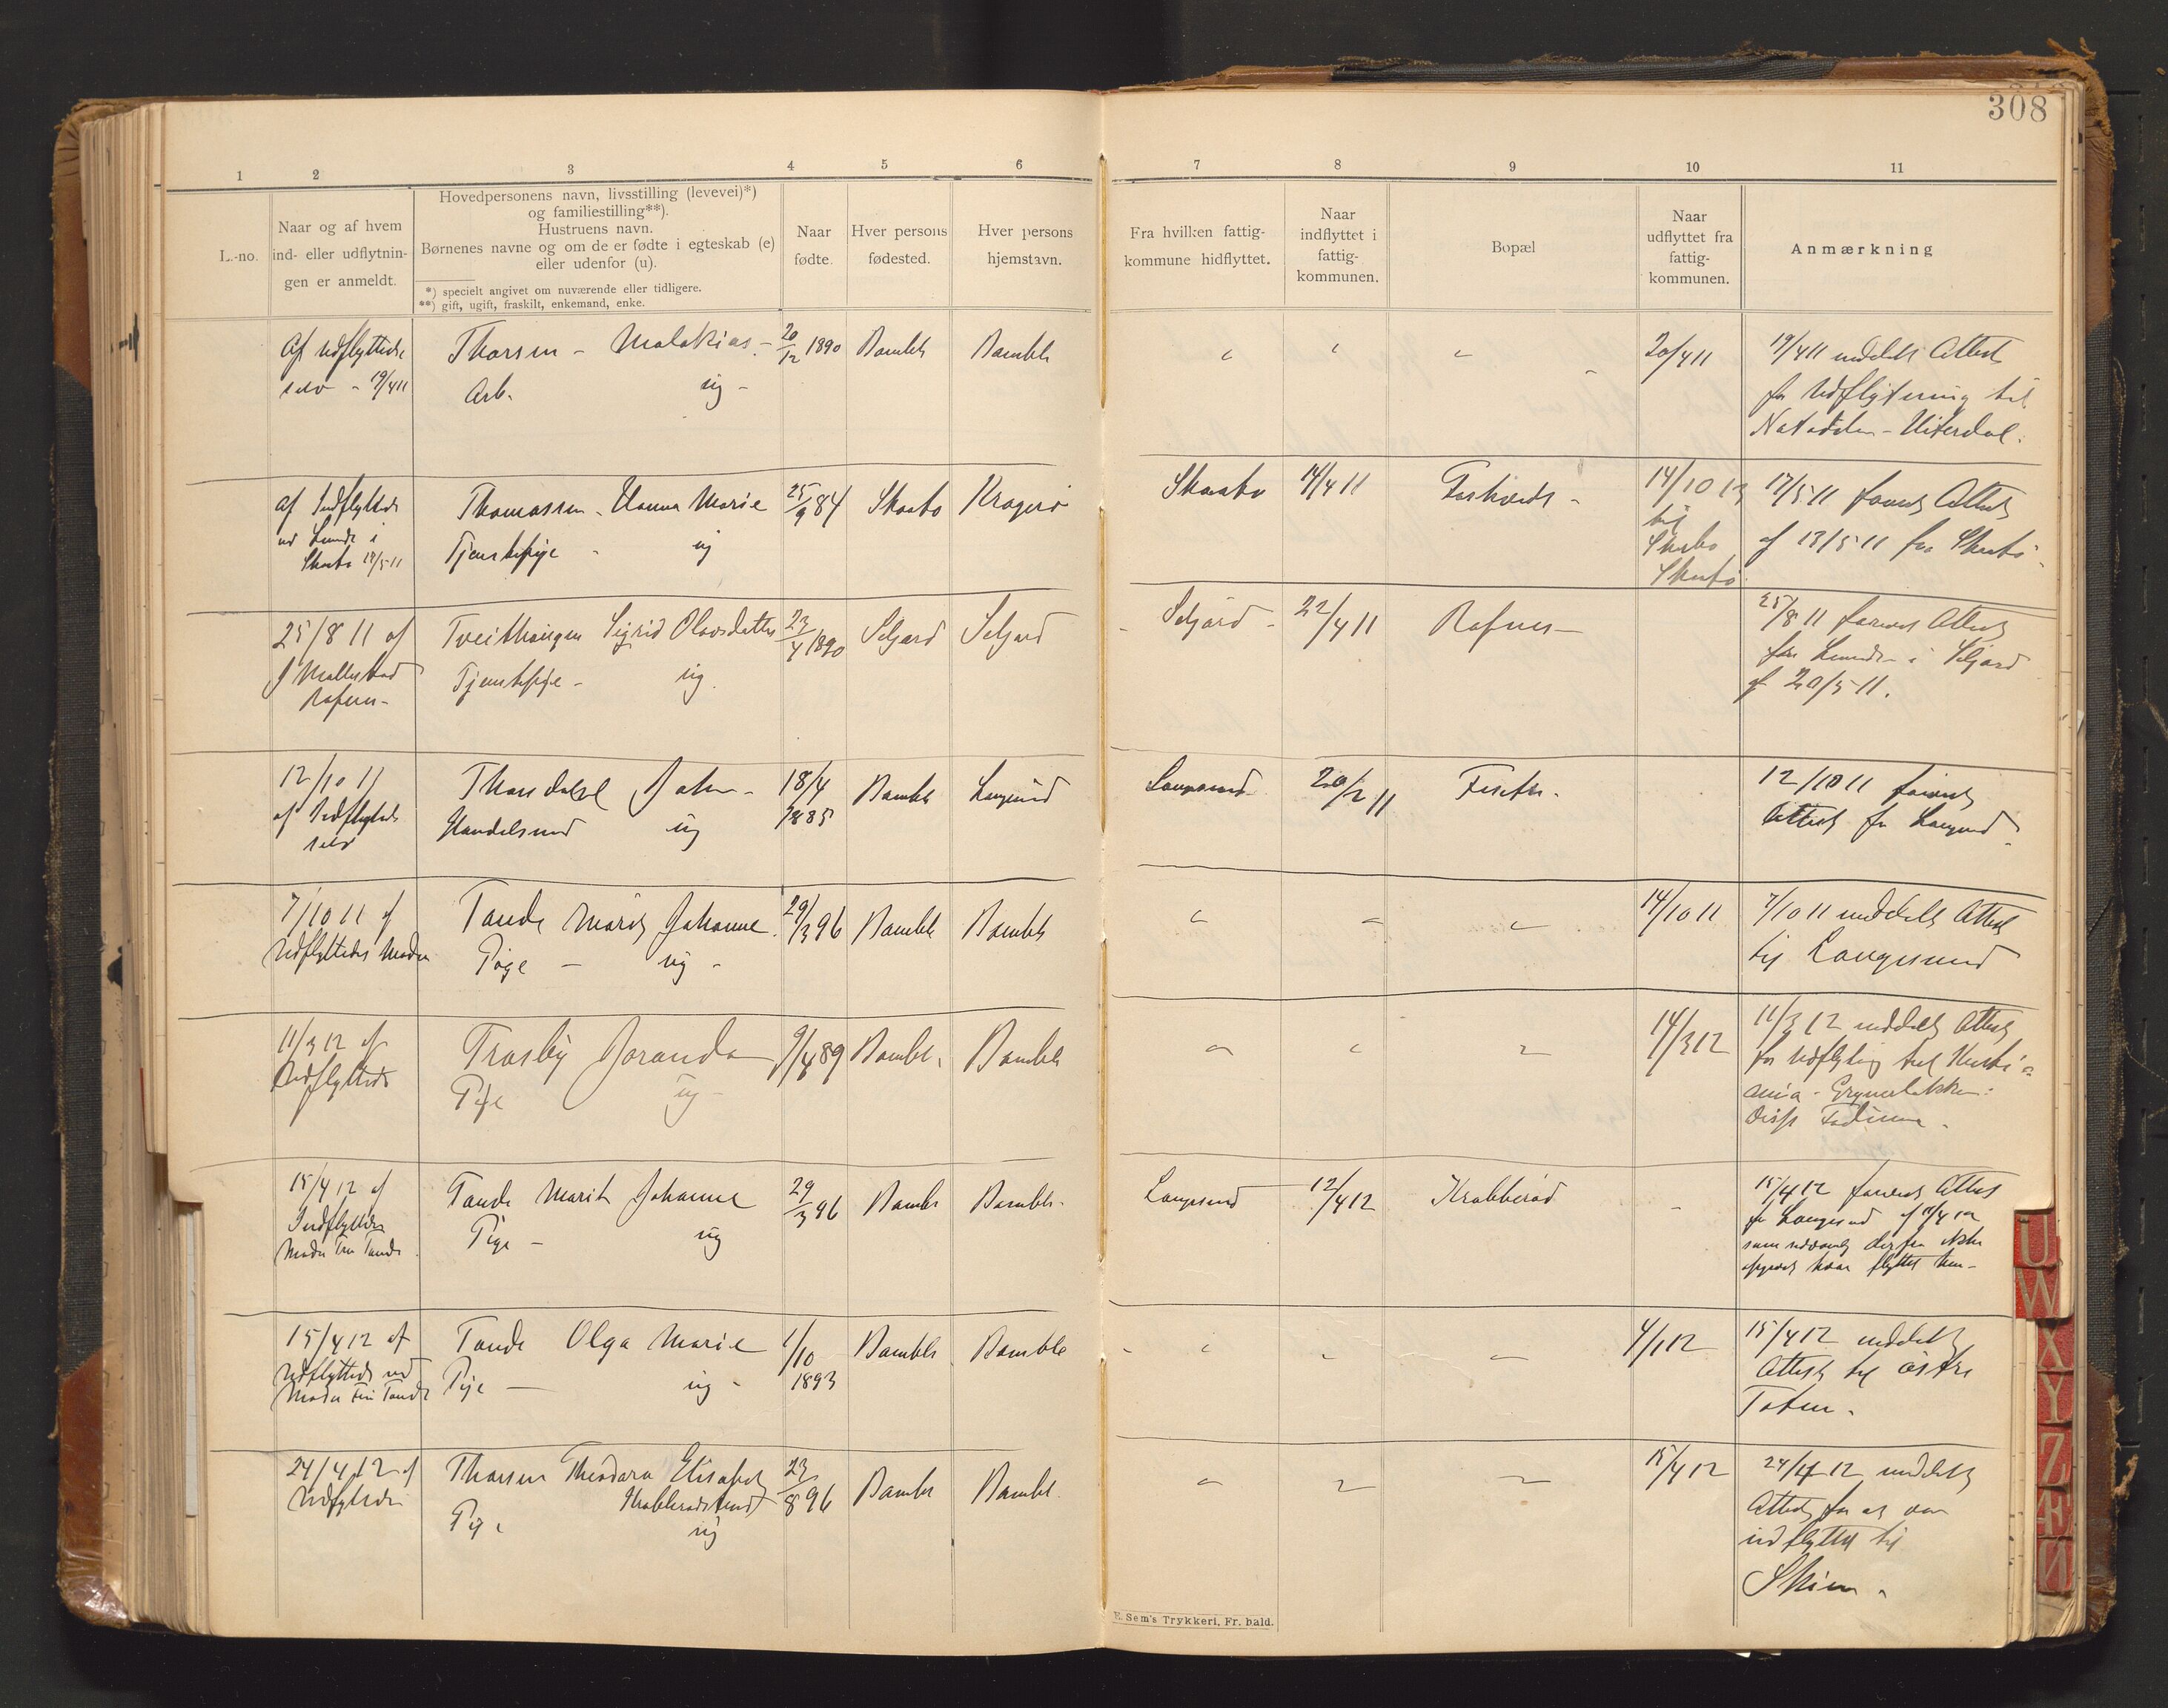 308
1 2 3 4 5 6 7 8 9 10 11
L.-no.
Naar og af hvem
ind- eller udflytnin-
gen er anmeldt.
Hovedpersonens navn, livsstilling (levevei)*)
og familiestilling**).
Hustruens navn.
Børnenes navne og om de er fødte i egteskab (e)
eller udenfor (u).
*) specielt angivet om nuværende eller tidligere.
**) gift, ugift, fraskilt, enkemand, enke.
Naar
fødte.
Hver persons
fødested.
Hver persons
hjemstavn.
Fra hvilken fattig-
kommune hidflyttet.
Naar
indflyttet i
fattig-
kommunen.
Bopæl
Naar
udflyttet fra
fattig-
kommunen.
Anmærkning
Af Udflyttede
selv - 19/4 11
Thorsen - Malakias -
Arb. ug -
20/12 1890
Bamble
Bamble
20/4 11
19/4 11 meddelt Attest
for Udflytning til
Notodden - Hiterdal.
af Indflyttede
ved Lensm. i
Thomassen - Hanna Marie
Tjenestepige - ug
25/9 84
Skaatø
Kragerø
Skaatø
14/4 11
14/10 13
til
Skaatø
17/5 11 forevist Attest
af 13/5 11 fra Skaatø.
25/8 11 af
Rafnes -
Tveithaugen Sigrid Olavsdatter
Tjenestepige - ug.
23/4 1890
Seljord
Seljord
Seljord -
22/4 11
Rafnes -
25/8 11 forevist Attest
fra Lensm. i Seljord
af 20/5 11.
12/10 11
af Indflyttede
selv
Thorsdal John -
Handelsmd ug
18/4
1885
Bamble
Langesund
Langesund
20/2 11
12/10 11 forevist
Attest fra Langesund.
7/10 11 af
Udflyttedes Moder
Tande Marit Johanne
Pige - ug -
29/3 96
Bamble
Bamble
14/10 11
7/10 11 meddelt Attest
til Langesund
11/3 12 af
Udflyttede
Trosby Joranda
Pige ug -
9/4 89
Bamble
Bamble
14/3 12
11/3 12 meddelt Attest
for Udflytng til Kristi-
ania - Grünerløkken:
15/4 12 af
Indflyttedes
Moder Fru Tande
Tande Marit Johanne
Pige - ug
29/3 96
Bamble
Bamble
Langesund
12/4 12
Krabberød
15/4 12 forevist Attest
fra Langesund af 11/4 12
15/4 12 af
Udflyttede ved
Moder Fru Tande
Tande Olga Marie
Pige - ug -
1/10
1893
Bamble
Bamble
4/1 12
15/4 12 meddelt
Attest til østre
Toten.
24/4 12 af
Udflyttede
Thorsen Theodora Elisabet
Krabberødstrand
Pige ug
23/8 96
Bamble
Bamble
15/4 12
24/4 12 meddelt
Attest for at være
indflyttet til
Skien.
E. Sem's Trykkeri, Fr. hald.
U
W
X
Y
Z
Æ
Ø